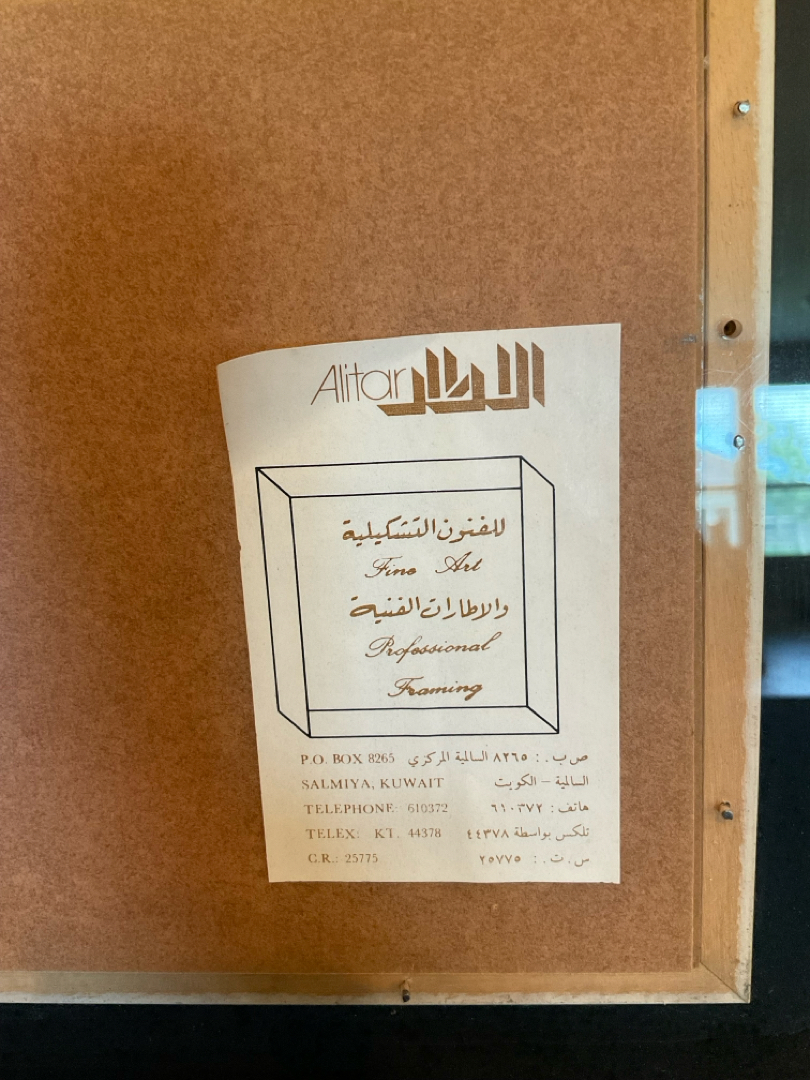 Alitar الاطار
للفنون التشكيلية
Fine Art
والاطارات الفنية
Professional
Framing
P.O. BOX 8265 ص.ب. : ٨٢٦٥ السالمية المركزي
SALMIYA, KUWAIT السالمية – الكويت
TELEPHONE: 610372 هاتف : ٦١٠٣٧٢
TELEX: KT. 44378 تلكس بواسطة ٤٤٣٧٨
C.R.: 25775 س.ت. : ٢٥٧٧٥